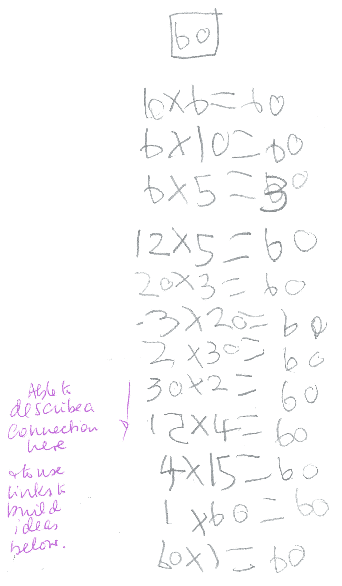 60
10x6=60
6x10=60
6x5=30
12x5=60
20x3=60
3x20=60
2x30=60
30x2=60
12x4=60
4x15=60
1x60=60
60x1=60
Able to
describe a
connection
here
& to use
links to
build
ideas
below.